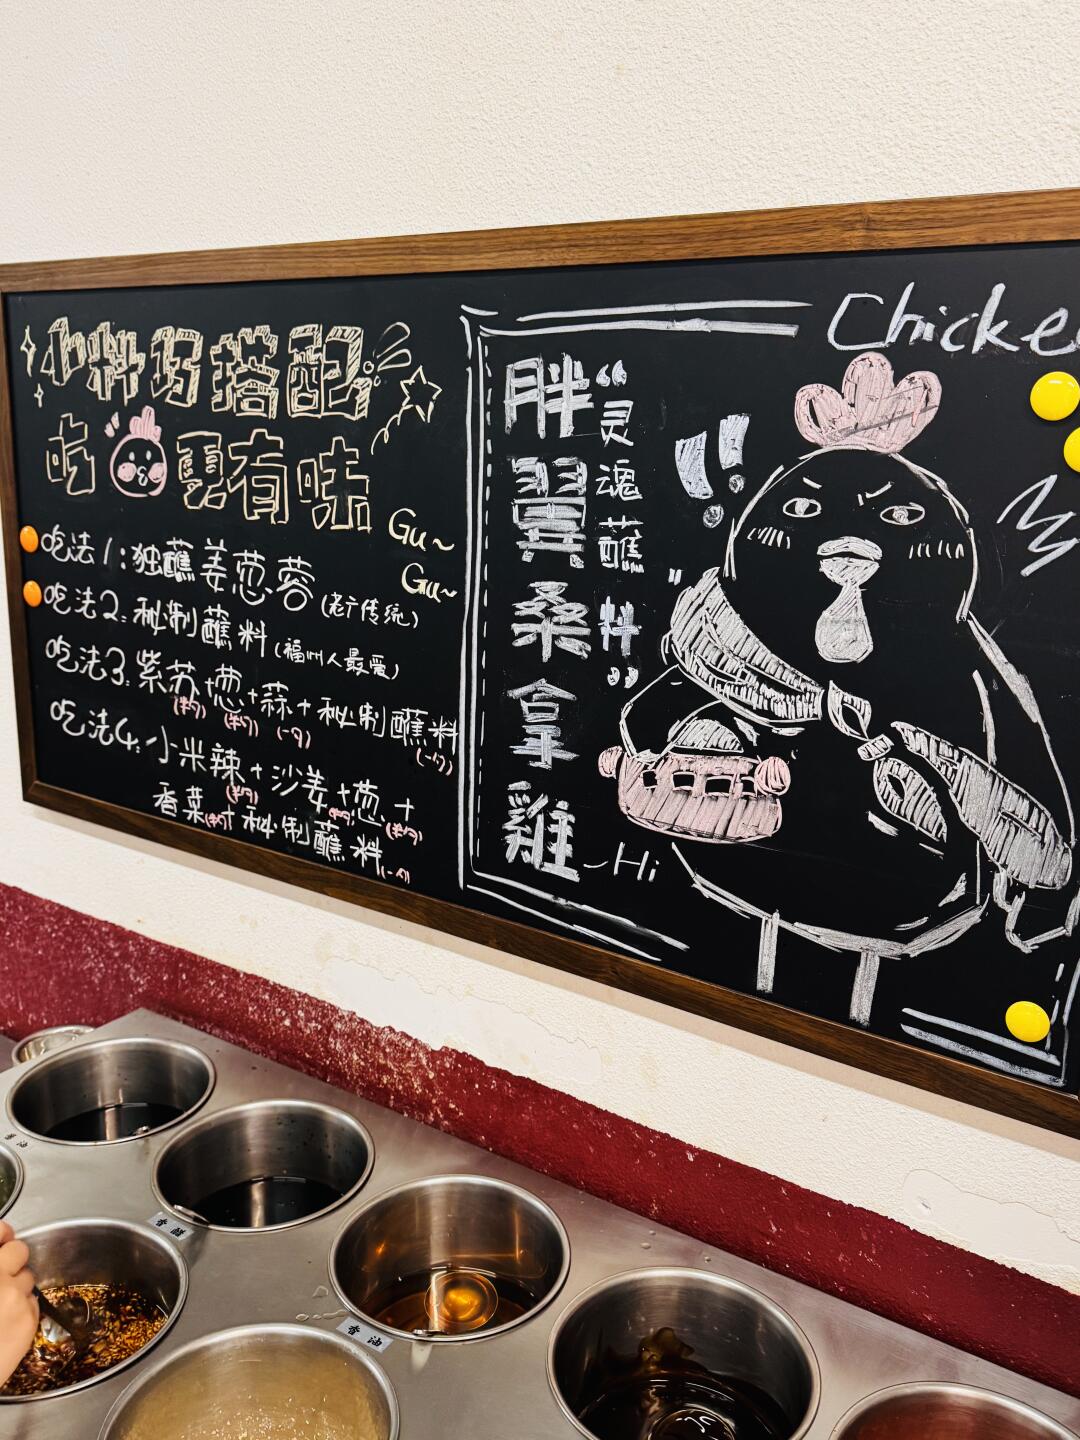 小料巧搭配
吃 更有味
Gu~
Gu~
吃法1:独蘸姜葱蓉(老广传统)
吃法2:秘制蘸料(福州人最爱)
吃法3:紫苏+葱+蒜+秘制蘸料
(半勺) (半勺) (一勺) (一勺)
吃法4:小米辣+沙姜+葱+
(半勺) (半勺)
香菜+秘制蘸料
(一勺)
胖翼桑拿雞
“灵魂蘸料”
Hi
Chicke
香醋
香油